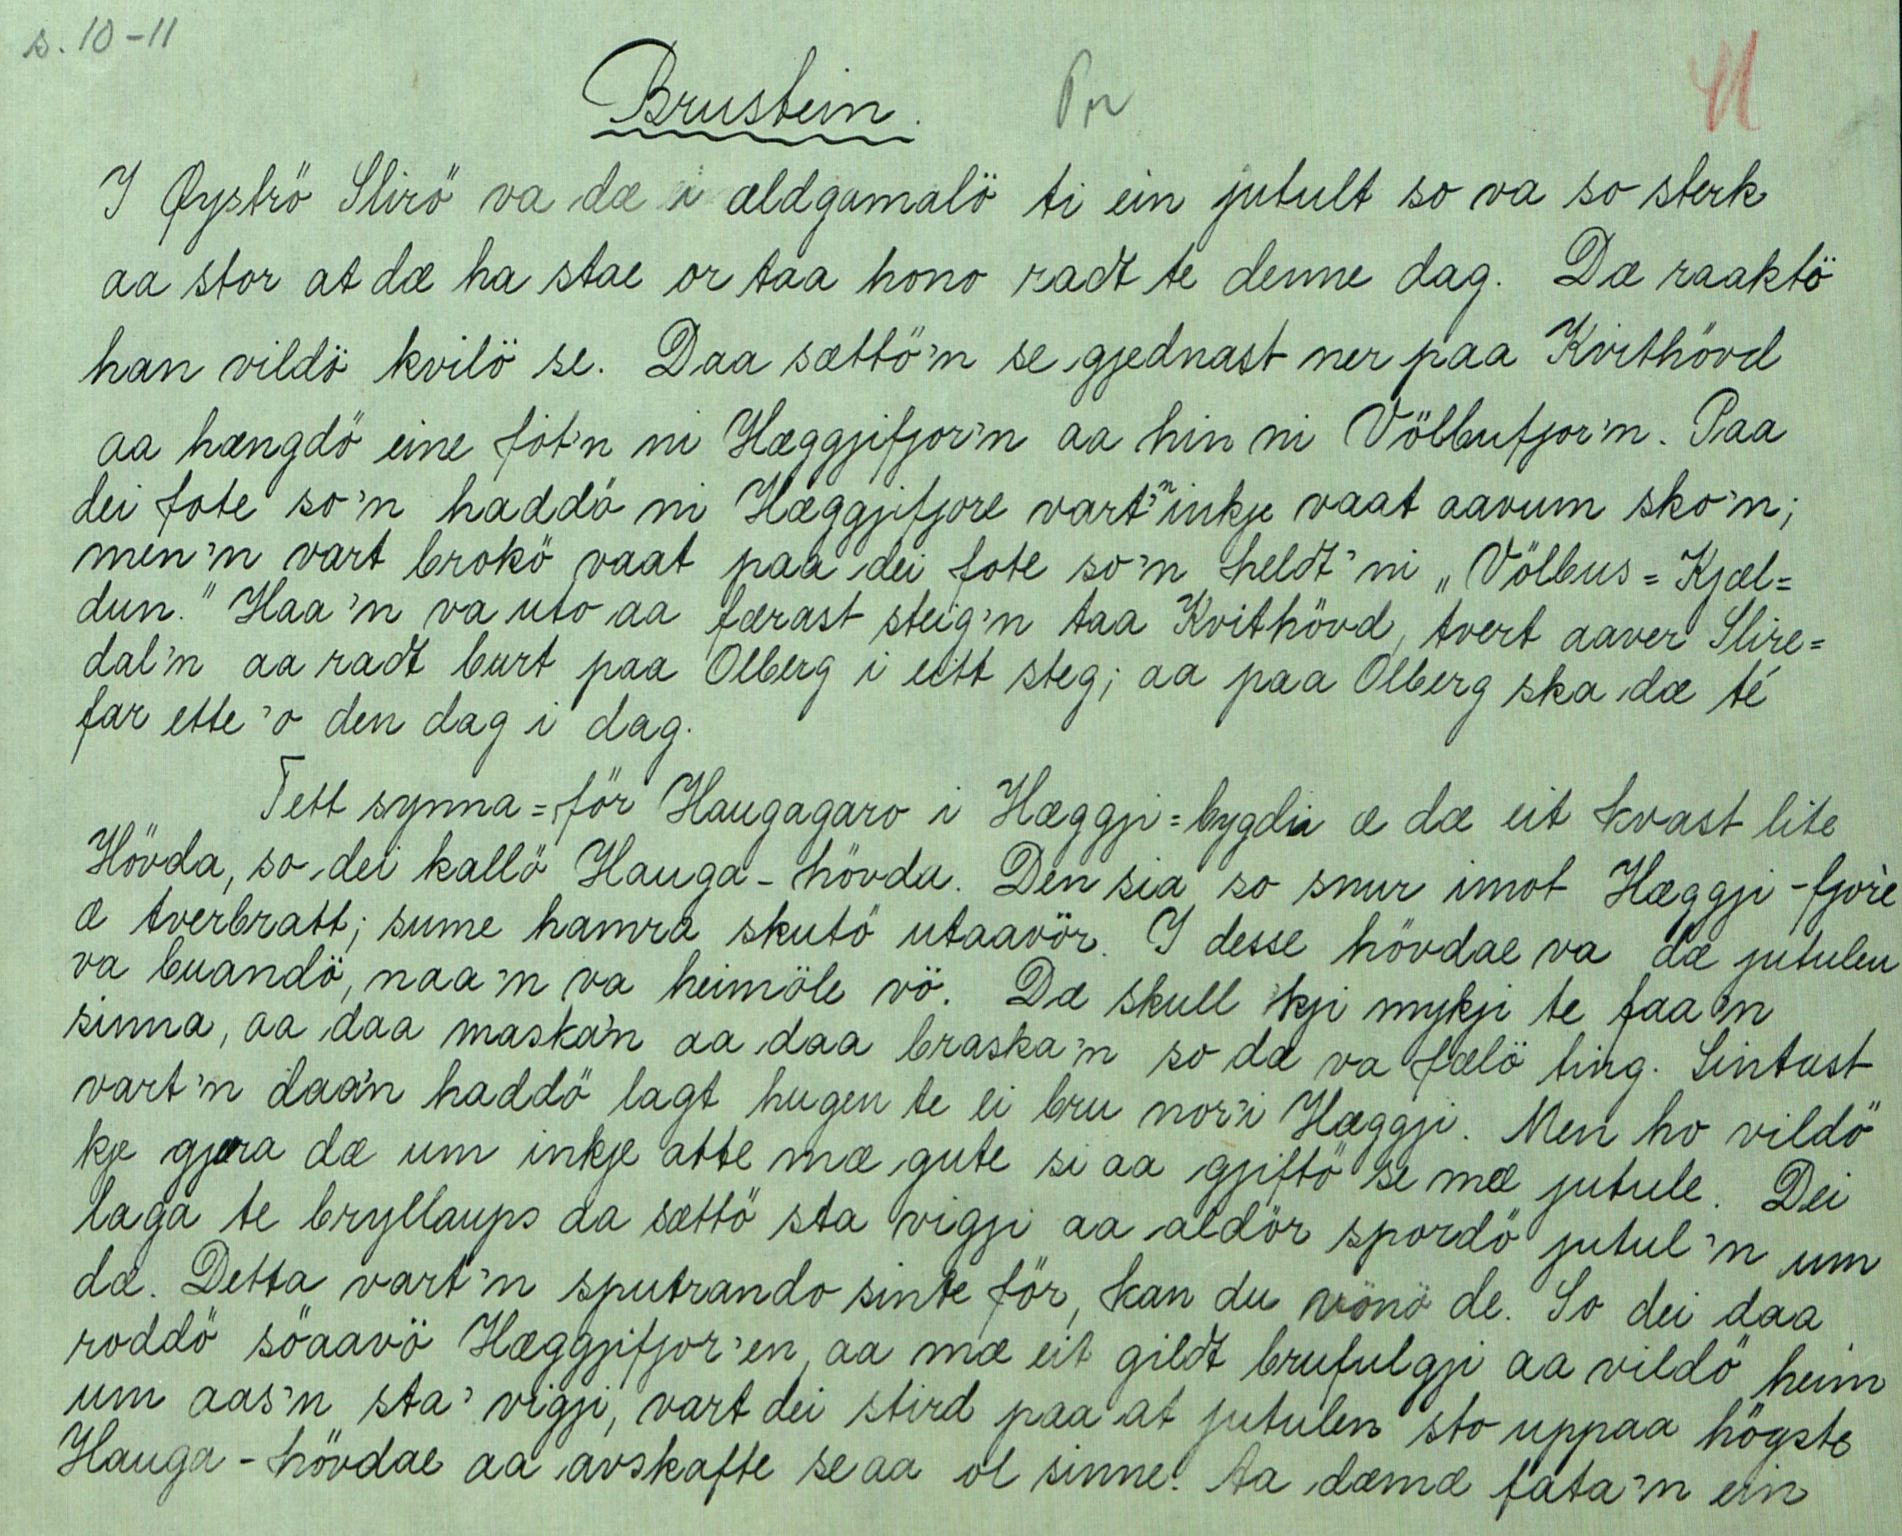 s. 10-11
Brustein.
I Øyströ Slirö va dæ i ældgamalö ti ein jutult so va so sterk
aa stor at dæ ha stae or taa hono radt te denne dag. Dæ raaktö
han vildö kvilö se. Daa sættö'n se gjednast ner paa Kvithövd
aa hængdö eine fot'n ni Hæggjifjor'n aa hin ni Völbufjor'n. Paa
dei fote so'n haddö ni Hæggjifjore vart'n inkje vaat aavum sko'n;
men'n vart brokö vaat paa dei fote so'n heldt' ni „Völbus=Kjæl=
dun." Haa'n va uto aa færast steig'n taa Kvithövd, tvert aaver Slire=
dal'n aa radt burt paa Olberg i eitt steg; aa paa Olberg ska dæ té
far ette'o den dag i dag.
Tett synna=för Haugagaro i Hæggji=bygdn æ dæ eit kvast lite
Hövda, so dei kallö Hauga-hövda. Den sia so snur imot Hæggji-fjore
æ tverbratt; sume hamra skutö utaavör. I desse hövdae va dæ jutulen
va buandö, naa'n va heimöle vö. Dæ skull 'kji mykji te faa'n
sinna, aa daa maska'n aa daa braska'n so dæ va fælö ting. Sintast
vart'n daa'n haddö lagt hugen te ei bru nor'i Hæggji. Men ho vildö
kje gjera dæ um inkje atte mæ gute si aa gjiftö se mæ jutule. Dei
laga te bryllaups aa sættö sta vigji aa aldör spordö jutul'n um
dæ. Detta vart'n sputrando sinte för, kan du vönö de. So dei daa
roddö söaavö Hæggjifjor'en, aa mæ eit gildt brufulgji aa vildö heim
um aas'n sta' vigji, vart dei stird paa at jutulen sto uppaa högste
Hauga-hövdae aa avskafte se aa ol sinne. Aa dæmæ fata'n ein